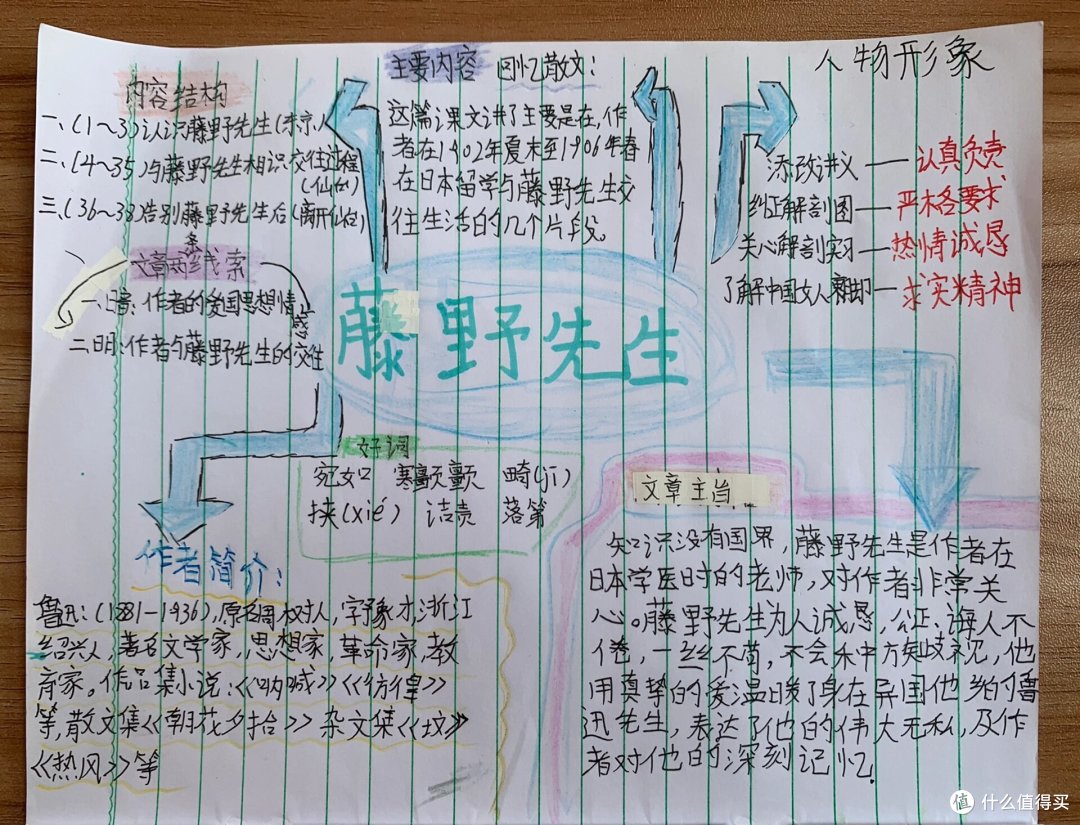 内容结构
一、(1~3)认识藤野先生(东京)
二、(4~35)与藤野先生相识交往过程
(仙台)
三、(36~38)告别藤野先生后(离开仙台)
文章两条线索
一暗:作者的爱国思想情感
二明:作者与藤野先生的交往
主要内容 回忆散文:
这篇课文讲了主要是在,作
者在1902年夏末至1906年春
在日本留学与藤野先生交
往生活的几个片段。
人物形象
添改讲义——认真负责
纠正解剖图——严格要求
关心解剖实习——热情诚恳
了解中国女人裹脚——求实精神
藤野先生
好词
宛如 寒颤 畸(jī)
挟(xié) 诘责 落第
作者简介:
鲁迅:(1881-1936),原名周树人,字豫才,浙江
绍兴人,著名文学家,思想家,革命家,教
育家。作品集小说:《呐喊》《彷徨》
等,散文集《朝花夕拾》杂文集《坟》
《热风》等
文章主旨
知识没有国界,藤野先生是作者在
日本学医时的老师,对作者非常关
心。藤野先生为人诚恳,公正、诲人不
倦,一丝不苟,不会种方歧视,他
用真挚的爱温暖了身在异国他乡的鲁
迅先生,表达了他的伟大无私,及作
者对他的深刻记忆.
值 什么值得买